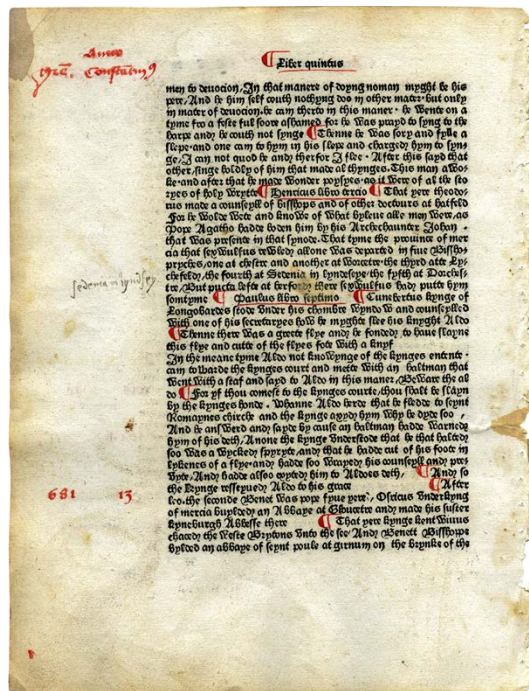 Liber quintus
men to deuocion, In that manere of doyng noman myght be his
pere, And he him self couth nothyng doo in other mater but only
in mater of deuocion, he cam therto in this maner he wente on a
tyme fro a feste ful soore ashamed for he was prayd to syng to the
harpe and he couth not synge Thenne he was sory and fylle a
slepe and one cam to hym in his slepe and charged hym to syn-
ge, I can not quod he and therfor I flee After this sayd that
other, singe boldly of him that made al thynges. This man awo-
ke and after that he made wonder poysyes as it were of al the sto
ryes of holy wrytte Henricius libro tercio That yere theodo-
rus made a counseyll of bisshops and of other doctours at hatfeld
For he wolde wete and knowe of what byleue alle men were, as
Pope Agatho hadde boden him by his Archechaunter Johan
that was presente in that synode. That tyme the prouince of mer
cia that sexwulfus rewled allone was departed in fiue Bisshop-
pryches, one at chestre and another at worcetre the thyrd atte Ly-
chefeld, the fourth at Sedenia in lyndeseye the fyfth at Dorches-
tre, But pucta lefte at herford there sexwulfus hady putte hym
somtyme Paulus libro septimo Cunebertus kynge of
Longobardes stode vnder his chambre wyndow and counseylled
with one of his secretaryes how he myght slee his knyght Aldo
Thenne there was a grete flye and he fonded to haue slayne
this flye and cutte of the flyes fote with a knyf
In the meane tyme Aldo not knowynge of the kynges entente
cam towarde the kynges court and mette with an haltman that
went with a staf and sayd to Aldo in this maner, Beware the al
do For yf thou comest to the kynges courte, thou shalt be slayn
by the kynges honde. Whanne Aldo herde that he fledde to seynt
Romaynes chirche and the kynge axyd hym why he dyde soo
And he answerd and sayde by cause an haltman hadde warned
hym of his deth, Anone the kynge vnderstode that he that halted
soo was a wycked spyryte, and that he hadde cut of his foote in
lyknesse of a flye and hadde soo wrayed his counseyll and pre-
uyte, And hadde also excyted him to Aldoes deth, And so
the kynge resseyued Aldo to his grace After
leo the seconde Benet was pope fyue yere, Osricus vnderkyng
of mercia buylded an Abbaye at Gloucetre and made his suster
kyneburgh Abbesse there That yere kynge kentwinus
chaced the weste Brytons vnto the see And Benett Bisshope
bylded an abbaye of seynt poule at girnum on the brynke of the
sedenia in lyndsey
681 13